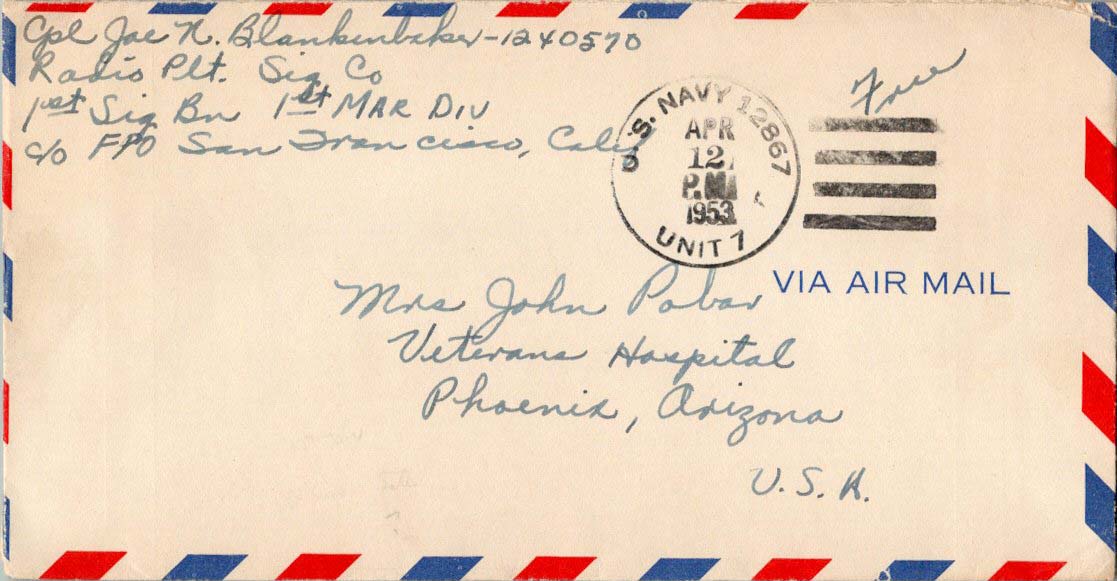 Cpl Joe N. Blankenbaker - 1240570
Radio Plt. Sig Co
1st Sig Bn 1st MAR DIV
c/o FPO San Francisco, Calif
Free
U.S. NAVY 12867
APR
12
P.M
1953
UNIT 7
VIA AIR MAIL
Mrs John Pobar
Veterans Hospital
Phoenix, Arizona
U.S.A.